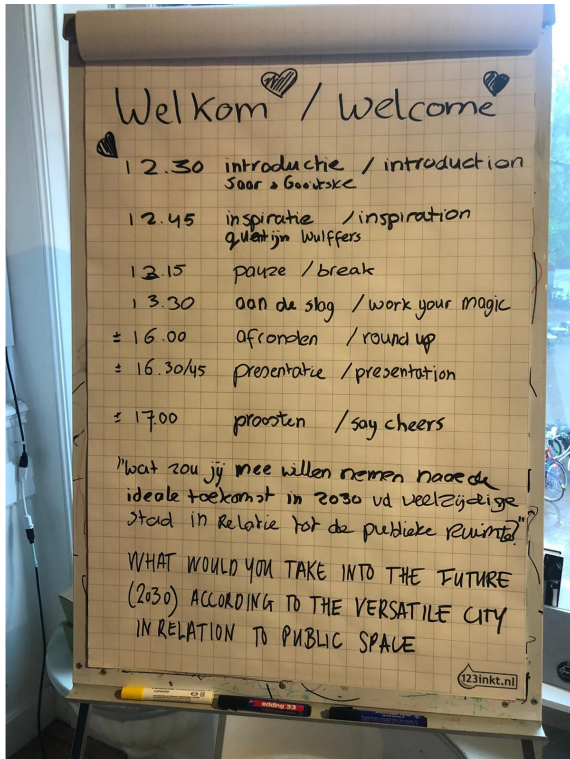 Welkom / Welcome
12.30 introductie / introduction
Saar & Gooitske
12.45 inspiratie / inspiration
Quintijn Wulffers
13.15 pauze / break
13.30 aan de slag / work your magic
± 16.00 afronden / round up
± 16.30/45 presentatie / presentation
± 17.00 proosten / say cheers
"wat zou jij mee willen nemen naar de
ideale toekomst in 2030 vd veelzijdige
stad in Relatie tot de publieke Ruimte?"
WHAT WOULD YOU TAKE INTO THE FUTURE
(2030) ACCORDING TO THE VERSATILE CITY
IN RELATION TO PUBLIC SPACE
123inkt.nl
edding 33